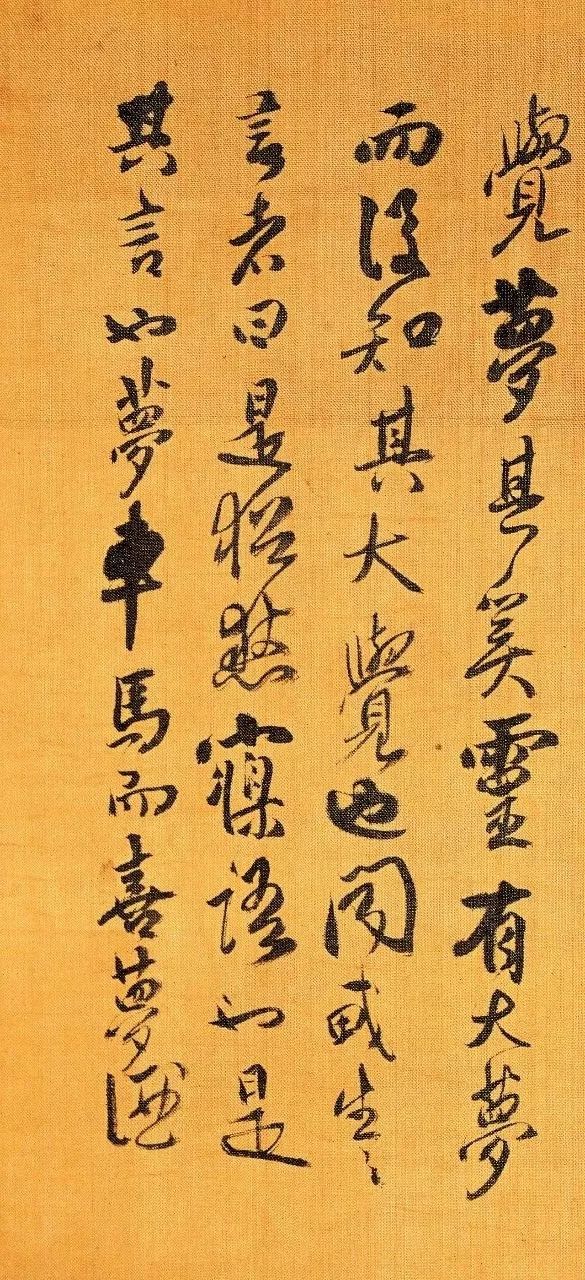 覺夢其奚靈有大夢
而後知其大覺也聞或生〻
言者曰是猶寱語也是
其言也夢車馬而喜夢酒